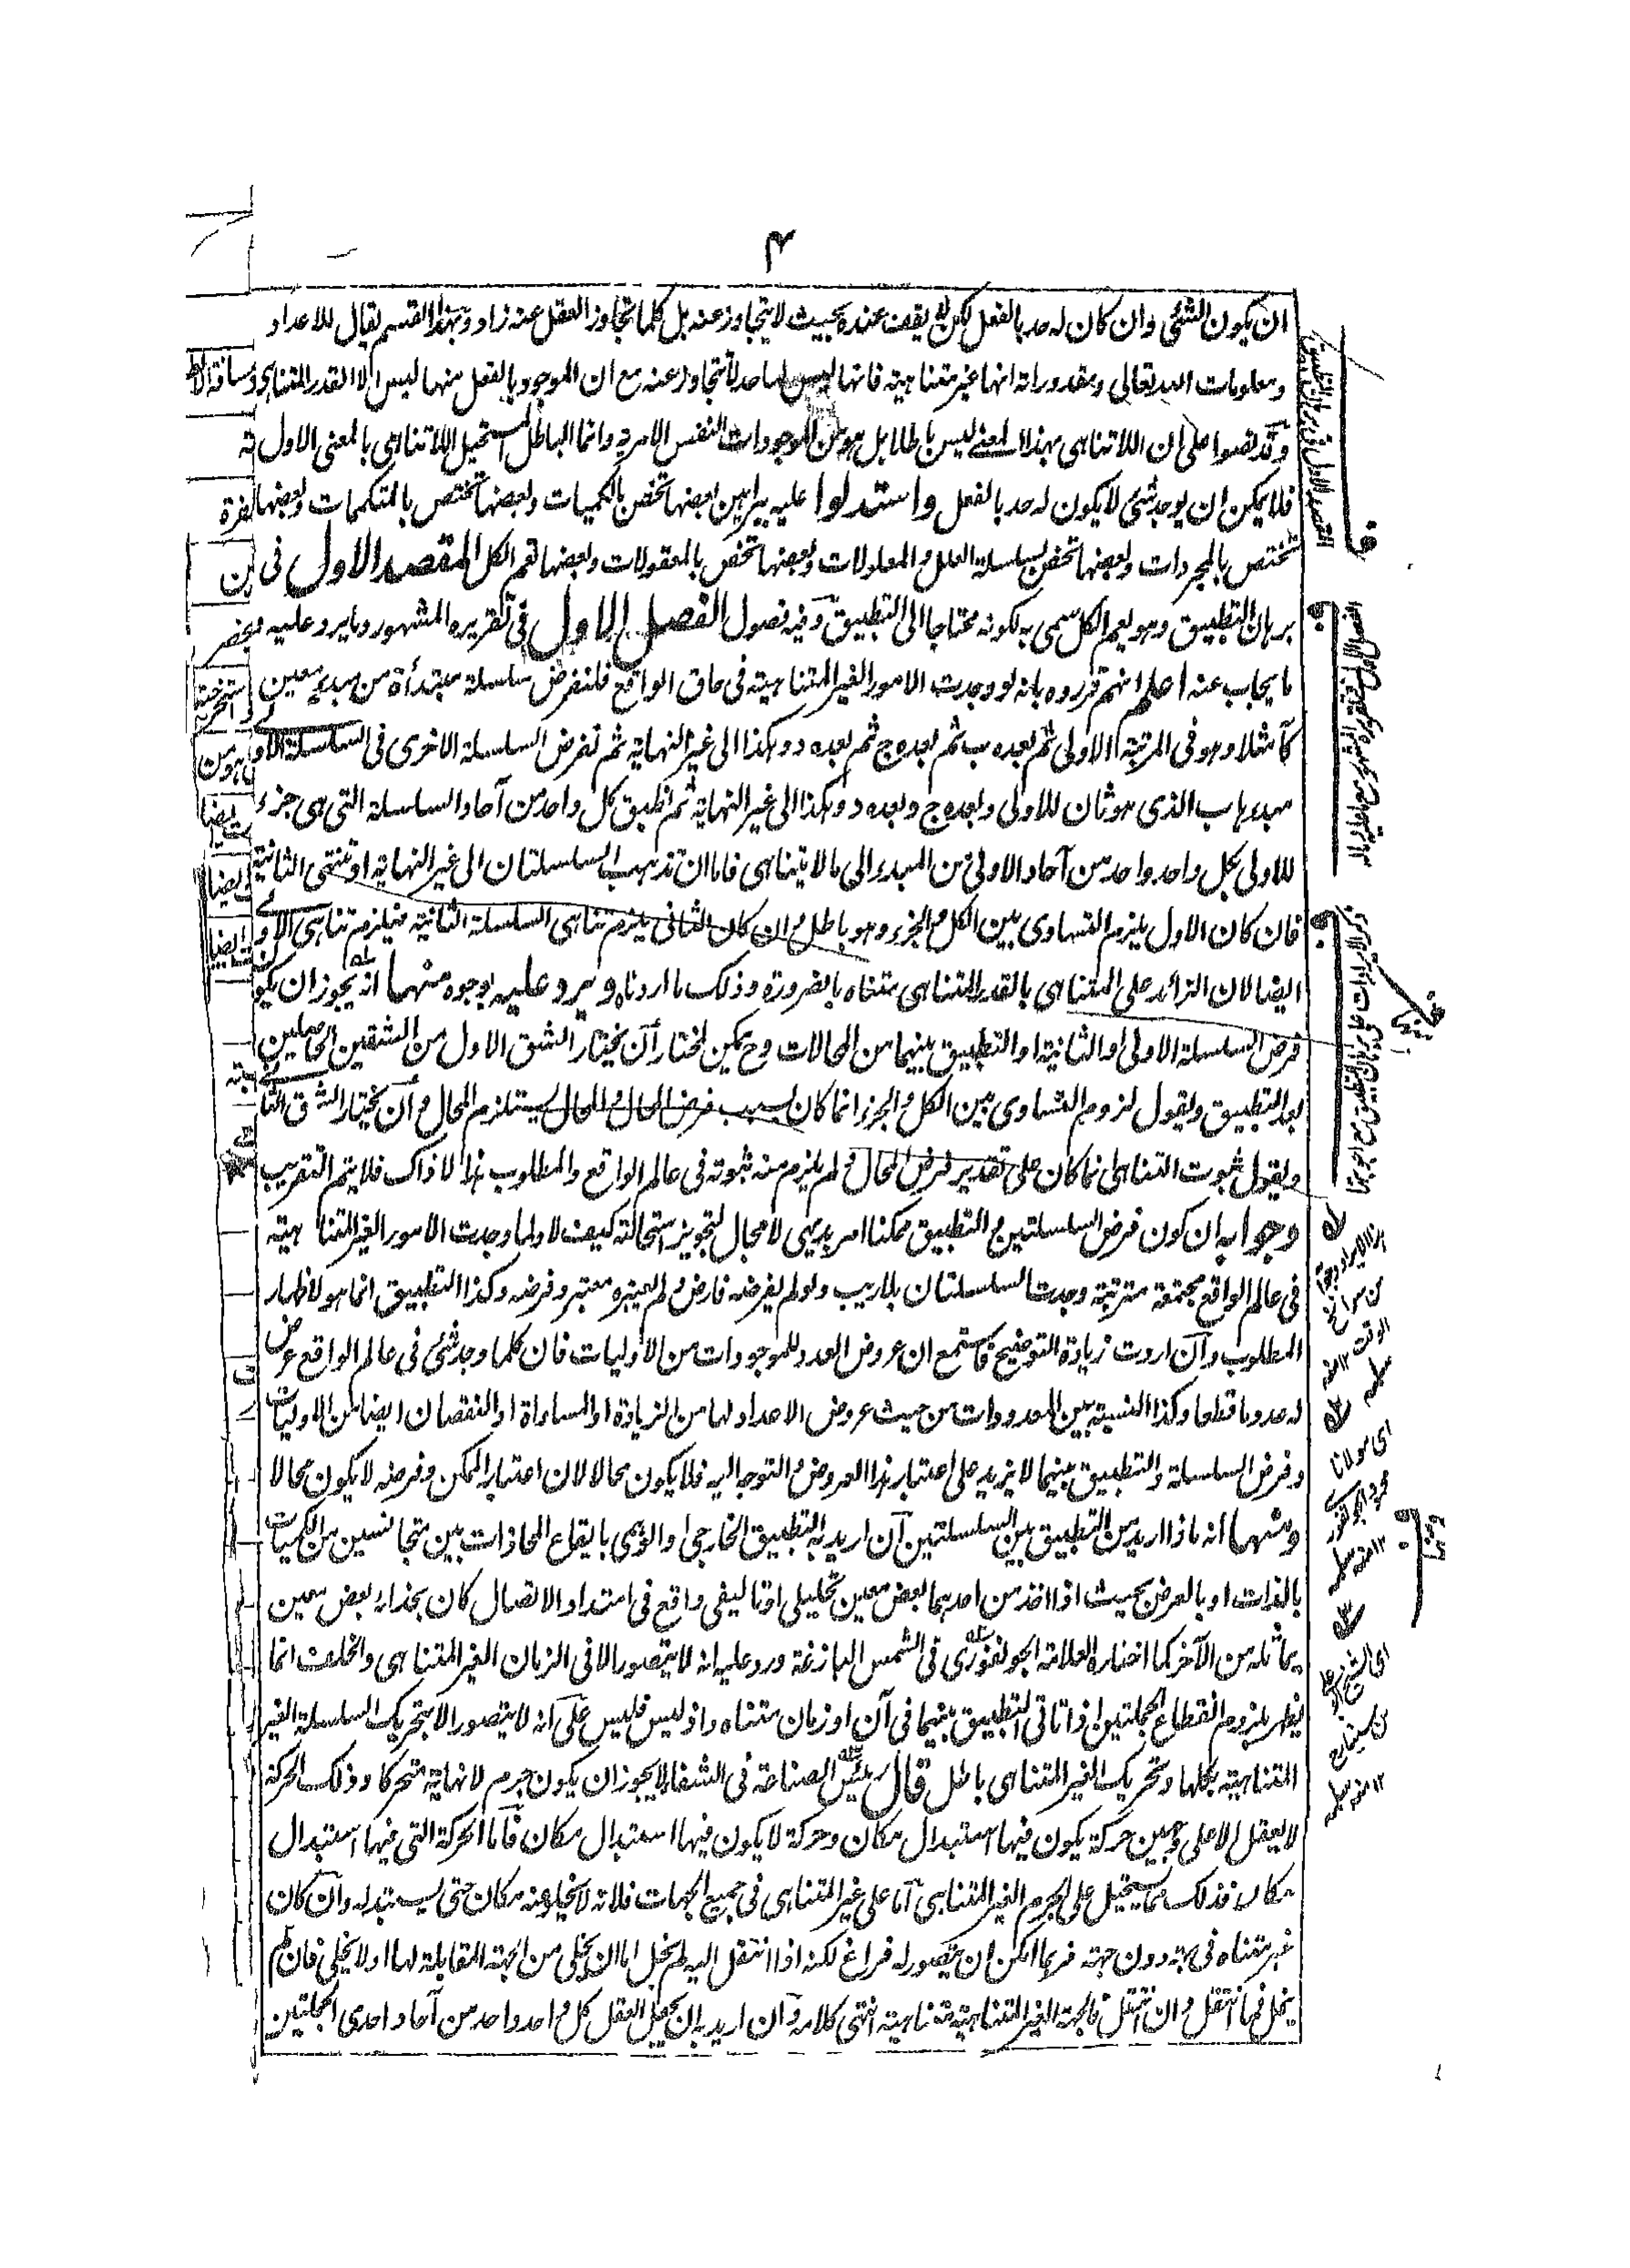 ٤
ان يكون الشئ وان كان له حد بالفعل لكن لا يقف عنده بحيث لا يتجاوز عنه بل كلما تجاوز العقل عنه زاد وبهذا القسم يقال للاعداد
ومعلومات الله تعالى ومقدوراته انها غير متناهية فانها ليس لها حد لا تتجاوز عنه مع ان الموجود بالفعل منها ليس الا القدر المتناهى
وقد نصوا على ان اللاتناهى بهذا المعنى ليس باطلا بل هو من الموجودات النفس الامرية وانما الباطل المستحيل اللاتناهى بالمعنى الاول
فلا يمكن ان يوجد شئ لا يكون له حد بالفعل واستدلوا عليه ببراهين بعضها تختص بالكميات وبعضها تختص بالمتكممات وبعضها
تختص بالمجردات وبعضها تختص بسلسلة العلل والمعلولات وبعضها تختص بالمعقولات وبعضها تعم الكل المقصد الاول فى
برهان التطبيق وهو يعم الكل سمى به لكونه محتاجا الى التطبيق وفيه فصول الفصل الاول فى تقريره المشهور وما يرد عليه
ما يجاب عنه اعلم انهم قرروه بانه لو وجدت الامور الغير المتناهية فى حاق الواقع فلنفرض سلسلة مبتدأة من مبدء معين
كآ مثلا وهو فى المرتبة الاولى ثم بعده ب ثم بعده ج ثم بعده د وهكذا الى غير النهاية ثم نفرض السلسلة الاخرى فى السلسلة الاولى
مبدءها ب الذى هو ثان للاولى وبعده ج وبعده د وهكذا الى غير النهاية ثم نطبق كل واحد من آحاد السلسلة التى هى جزء
للاولى بكل واحد واحد من آحاد الاولى من المبدء الى ما لا يتناهى فاما ان تذهب السلسلتان الى غير النهاية او تنتهى الثانية
فان كان الاول يلزم التساوى بين الكل والجزء وهو باطل وان كان الثانى يلزم تناهى السلسلة الثانية فيلزم تناهى الاولى
ايضا لان الزائد على المتناهى بالقدر المتناهى متناه بالضرورة وذلك ما اردناه ويرد عليه بوجوه منها انه يجوز ان يكون
فرض السلسلة الاولى او الثانية او التطبيق بينهما من المحالات وح يمكن لمختار أن يختار الشق الاول من الشقين الحاصلين
بعد التطبيق ويقول لزوم التساوى بين الكل والجزء انما كان بسبب فرض المحال والمحال يستلزم المحال وأن يختار الشق الثانى
ويقول ثبوت التناهى انما كان على تقدير فرض المحال ولم يلزم منه ثبوته فى عالم الواقع والمطلوب هذا لا ذاك فلا يتم التقريب
وجوابه ان كون فرض السلسلتين والتطبيق ممكنا امر بديهى لا مجال لتجويز استحالته كيف لا ولما وجدت الامور الغير المتناهية
فى عالم الواقع مجتمعة مترتبة وجدت السلسلتان بلا ريب ولو لم يفرضه فارض ولم يعتبره معتبر وفرضه وكذا التطبيق انما هو لاظهار
المطلوب وان اردت زيادة التوضيح فاستمع ان عروض العدد للموجودات من الاوليات فان كلما وجد شئ فى عالم الواقع عرض
له عدد ما قطعا وكذا النسبة بين المعدودات من حيث عروض الاعداد لها من الزيادة او المساواة او النقصان ايضا من الاوليات
وفرض السلسلة والتطبيق بينهما لا يزيد على اعتبار هذا العروض والتوجه اليه فلا يكون محالا لان اعتبار الممكن وفرضه لا يكون محالا
ومنها انه ماذا اريد من التطبيق بين السلسلتين ان اريد به التطبيق الخارجى او الوهمى بايقاع المحاذات بين متجانسين من الكميات
بالذات او بالعرض بحيث اذا اخذ من احدهما بعض معين تحليلى او تاليفى واقع فى امتداد الاتصال كان بحذاءه بعض معين
يماثله من الآخر كما اختاره العلامة الجونفورى فى الشمس البازغة ورد عليه انه لا يتصور الا فى الزمان الغير المتناهى والخلف انما
يظهر بلزوم انقطاع الجملتين اذا تاتى التطبيق بينهما فى آن او زمان متناه واذ ليس فليس على انه لا يتصور الا بتحريك السلسلة الغير
المتناهية بكلها وتحريك الغير المتناهى باطل قال رئيس الصناعة فى الشفاء لا يجوز ان يكون جرم لا نهاية متحركا وذلك الحركة
لا يعقل الا على وجهين حركة يكون فيها استبدال مكان وحركة لا يكون فيها استبدال مكان فاما الحركة التى فيها استبدال
مكان فذلك مما يستحيل على الجرم الغير المتناهى اما على غير المتناهى فى جميع الجهات فلانه لا يخلو عنه مكان حتى يستبدله وان كان
غير متناه فى جهة دون جهة فربما امكن ان يتصور له فراغ لكنه اذا انتقل اليه لم يخل اما ان يخلى من الجهة المقابلة لها او لا يخلى فان لم
يخل فما انتقل وان انتقل فالجهة الغير المتناهية متناهية انتهى كلامه وان اريد به ان يجعل العقل كل واحد واحد من آحاد احدى الجملتين
المقصد الاول فى برهان التطبيق
هذا الايراد
من سوانح
الوقت ١٢ منه
سلمه
اى مولانا
محمود الجونفورى
١٢ منه سلمه
اى الشيخ ابو على
بن سينا
١٢ منه سلمه